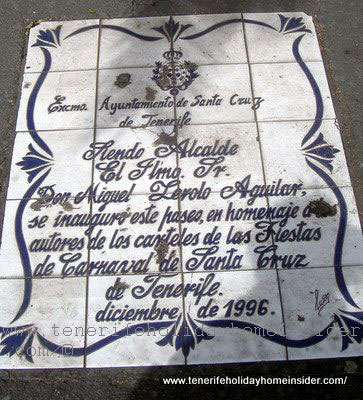 Excmo. Ayuntamiento de Santa Cruz
de Tenerife
Siendo Alcalde
El Ilmo. Sr.
Don Miguel Zerolo Aguilar,
se inauguró este paseo, en homenaje a
autores de los carteles de las Fiestas
de Carnaval de Santa Cruz
de Tenerife.
diciembre de 1996.
www.tenerifeholidayhomeinsider.com/